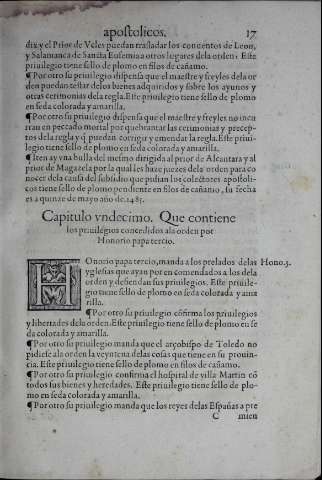 apostolicos. 17
dix y el Prior de Vcles puedan trasladar los conuentos de Leon,
y Salamanca de Sancta Eufemia a otros lugares dela orden: Este
priuilegio tiene sello de plomo en filos de cañamo.
¶ Por otro su priuilegio dispensa que el maestre y freyles dela or
den puedan testar delos bienes adquiridos y sobre los ayunos y
otras cerimonias dela regla. Este priuilegio tiene sello de plomo
en seda colorada y amarilla.
¶ Por otro su priuilegio dispensa que el maestre y freyles no incu
rran en peccado mortal por quebrantar las cerimonias y precep-
tos dela regla y q̃ puedan corregir y emendar la regla. Este priui-
legio tiene sello de plomo en seda colorada y amarilla.
¶ Iten ay vna bulla del mesmo dirigida al prior de Alcantara y al
prior de Magazela por la qual les haze juezes dela orden para co
nocer dela causa del subsidio que pidian los colectores apostoli-
cos tiene sello de plomo pendiente en filos de cañamo, su fecha
es a quinze de mayo año de.1485.
Capitulo vndecimo. Que contiene
los priuilegios concedidos ala orden por
Honorio papa tercio.
HOnorio papa tercio, manda a los prelados delas Hono.3.
yglesias que ayan por encomendados a los dela
orden y defiendan sus priuilegios. Este priuile-
gio tiene sello de plomo en seda colorada y ama
rilla.
¶ Por otro su priuilegio cõfirma los priuilegios
y libertades dela orden. Este priuilegio tiene sello de plomo en se
da colorada y amarilla.
¶ Por otro su priuilegio manda que el arçobispo de Toledo no
pidiese ala orden la veyntena delas cosas que tiene en su prouin-
cia. Este priuilegio tiene sello de plomo en filos de cañamo.
¶ Por otro su priuilegio confirma el hospital de villa Martin cõ
todos sus bienes y heredades. Este priuilegio tiene sello de plo-
mo en seda colorada y amarilla.
¶ Por otro su priuilegio manda que los reyes delas Españas a pre
C mien